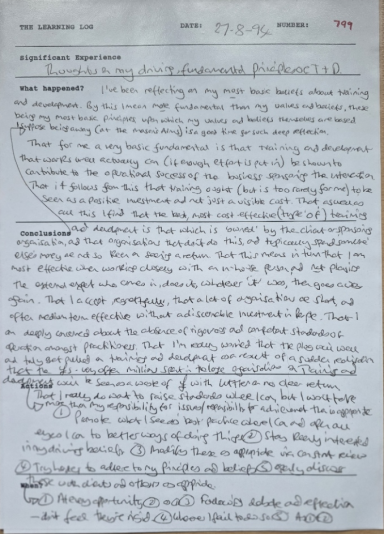 THE LEARNING LOG DATE: 27-8-94 NUMBER: 799
Significant Experience
Thoughts on my driving, fundamental principles of T + D.
What happened? I've been reflecting on my most basic beliefs about training
and development. By this I mean more fundamental than my values and beliefs, these
being my most basic principles upon which my values and beliefs themselves are based
being away (at the ) is a good time for such deep reflection.
That for me a very basic fundamental is that training and development
that works well actually can (if enough effort is put in) be shown to
contribute to the operational success of the business sponsoring the intervention
That it follows from this that training ought (but is too rarely for me) to be
seen as a positive investment and not just a visible cost. That as well as
all this I find that the best, most cost effective (type of) training
Conclusions and development is that which is 'owned' by the client or sponsoring
organisation, and that organisations that don't do this, and typically spend someone
else's money are not so keen on seeing a return. That this means in turn that I am
most effective when working closely with an in-house person and not playing
the external expert who comes in, does it, whatever 'it' was, then goes away
again. That I accept, regretfully, that a lot of organisations are short, and
often medium term effective without a discernible investment in people. That I
am deeply concerned about the absence of rigorous and competent standards of
operation amongst practitioners. That I'm really worried that the plug will
and truly get pulled on training and development as a result of a sudden realisation
that the very often millions spent in large organisations on Training and
development will be seen as a waste of with little or no clear return.
Actions That I really do want to raise standards where I can, but I won't take
more than my responsibility for issues/responsibility for achievement than is appropriate
① Promote what I see as best practice where I can and open all
eyes I can to better ways of doing things ② Stay really interested
in my driving beliefs ③ Modify these as appropriate via constant review
④ Try harder to adhere to my principles and beliefs ⑤ openly discuss
these with clients and others as appropriate
When?
① At every opportunity ② ③ Producing debate and reflection
– don't feel they're rigid ④ whenever I fail to do so ⑤ As ①